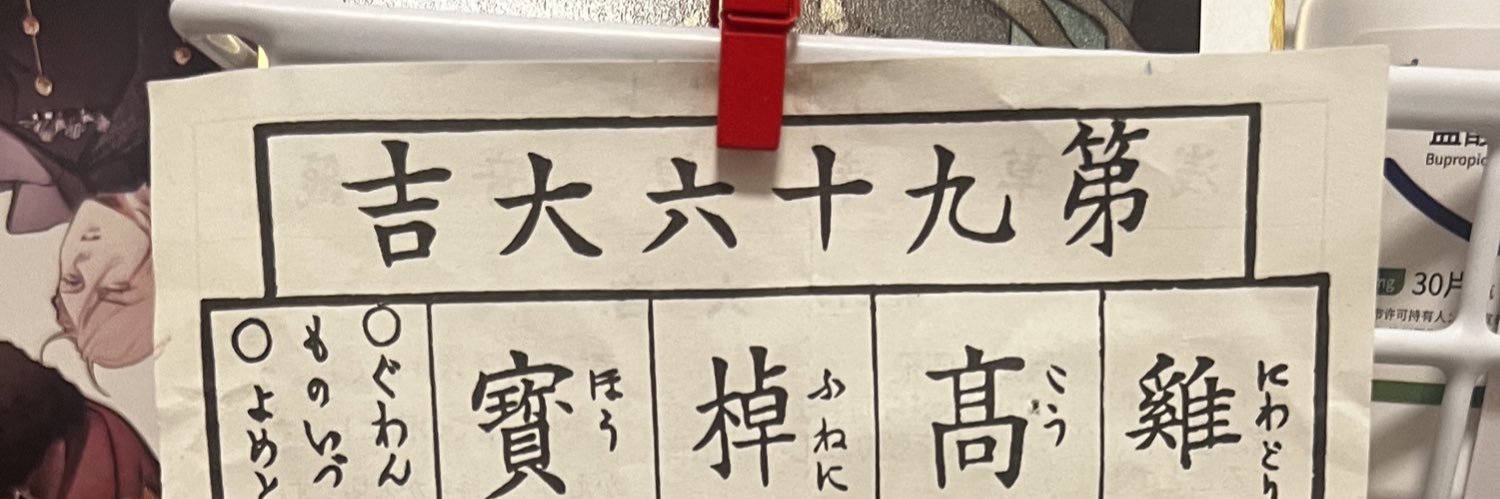 第九十六大吉
雞
にわとり
高
こう
棹
ふねに
寶
ほう
○ぐわん
ものいづ
○よめと
Bupropi
30片
市许可持有人: